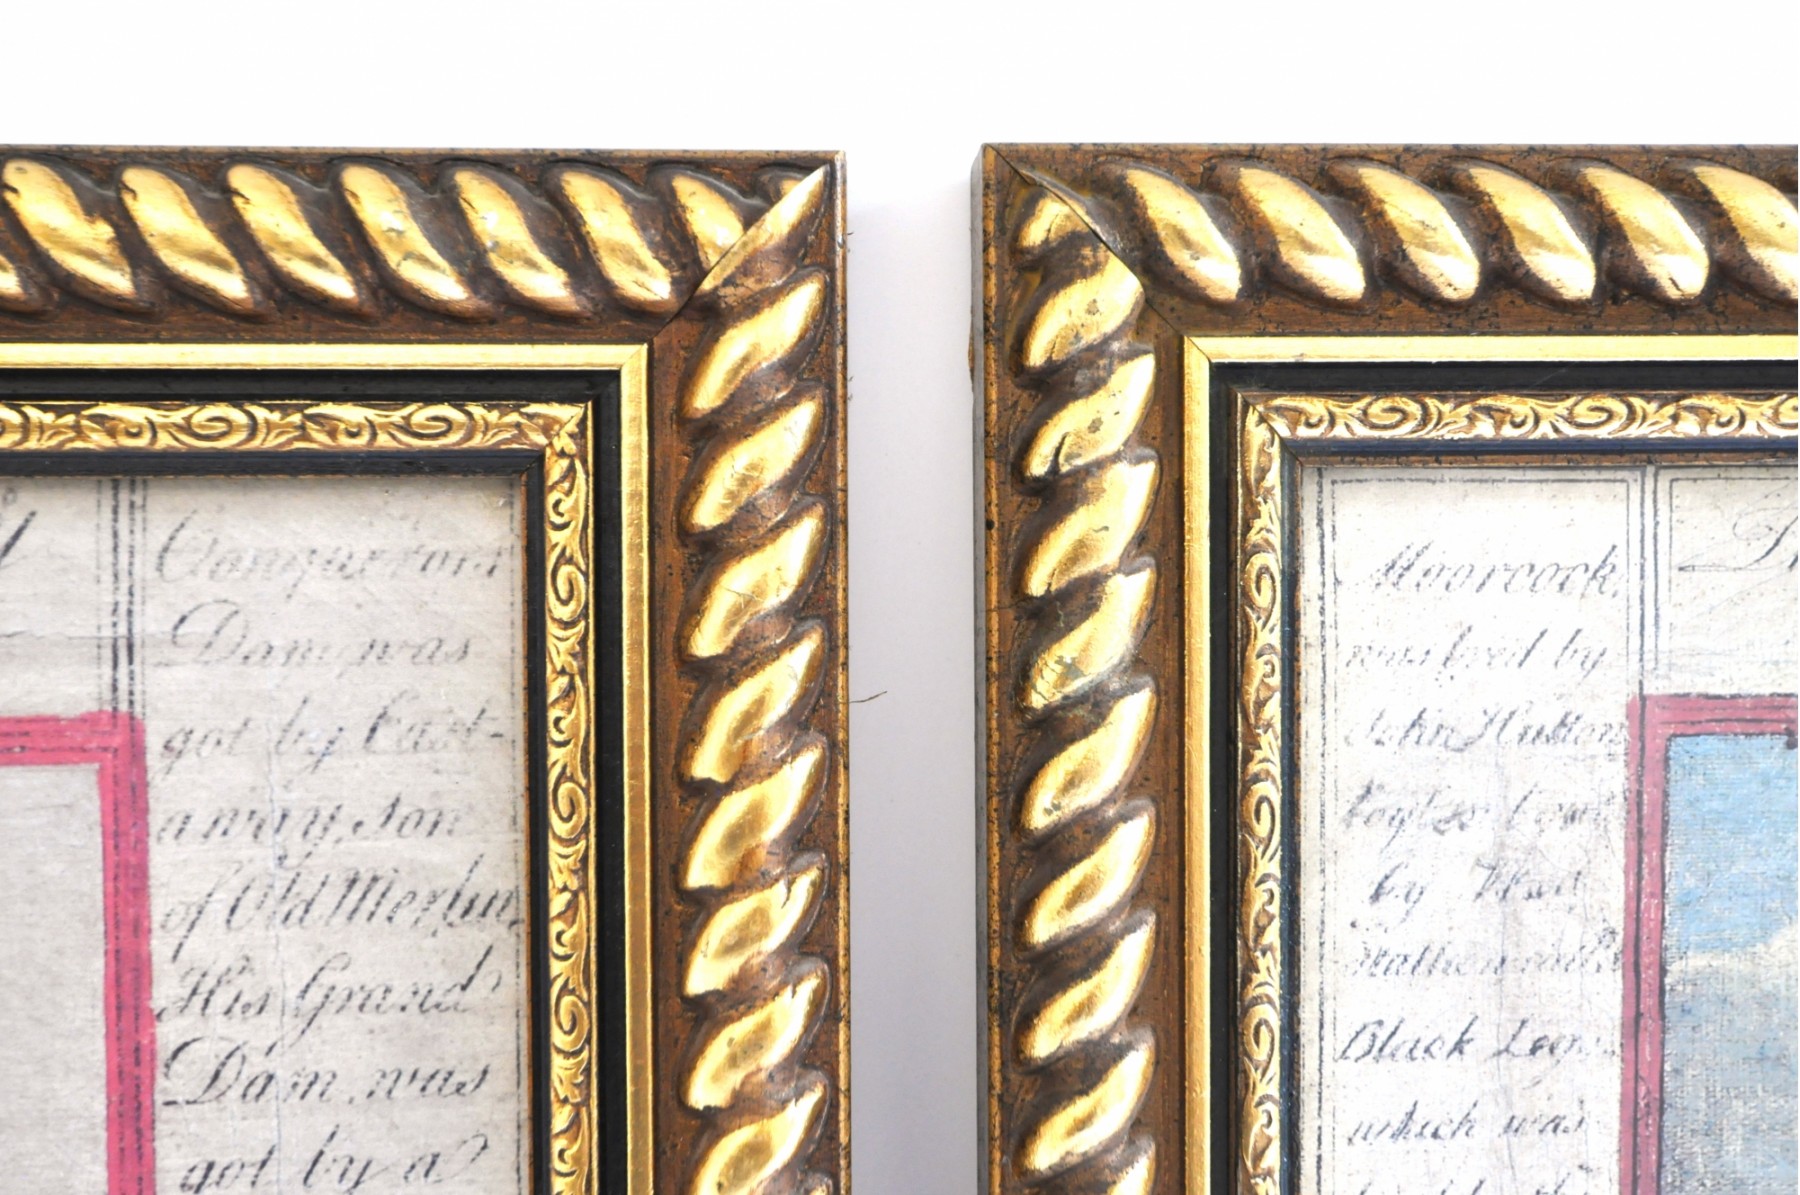 Conqueror's
Dam, was
got by Cast-
away, son
of Old Merlin,
His Grand
Dam, was
got by a
Moorcock,
was bred by
John Hutton
by
Black Legs
which was